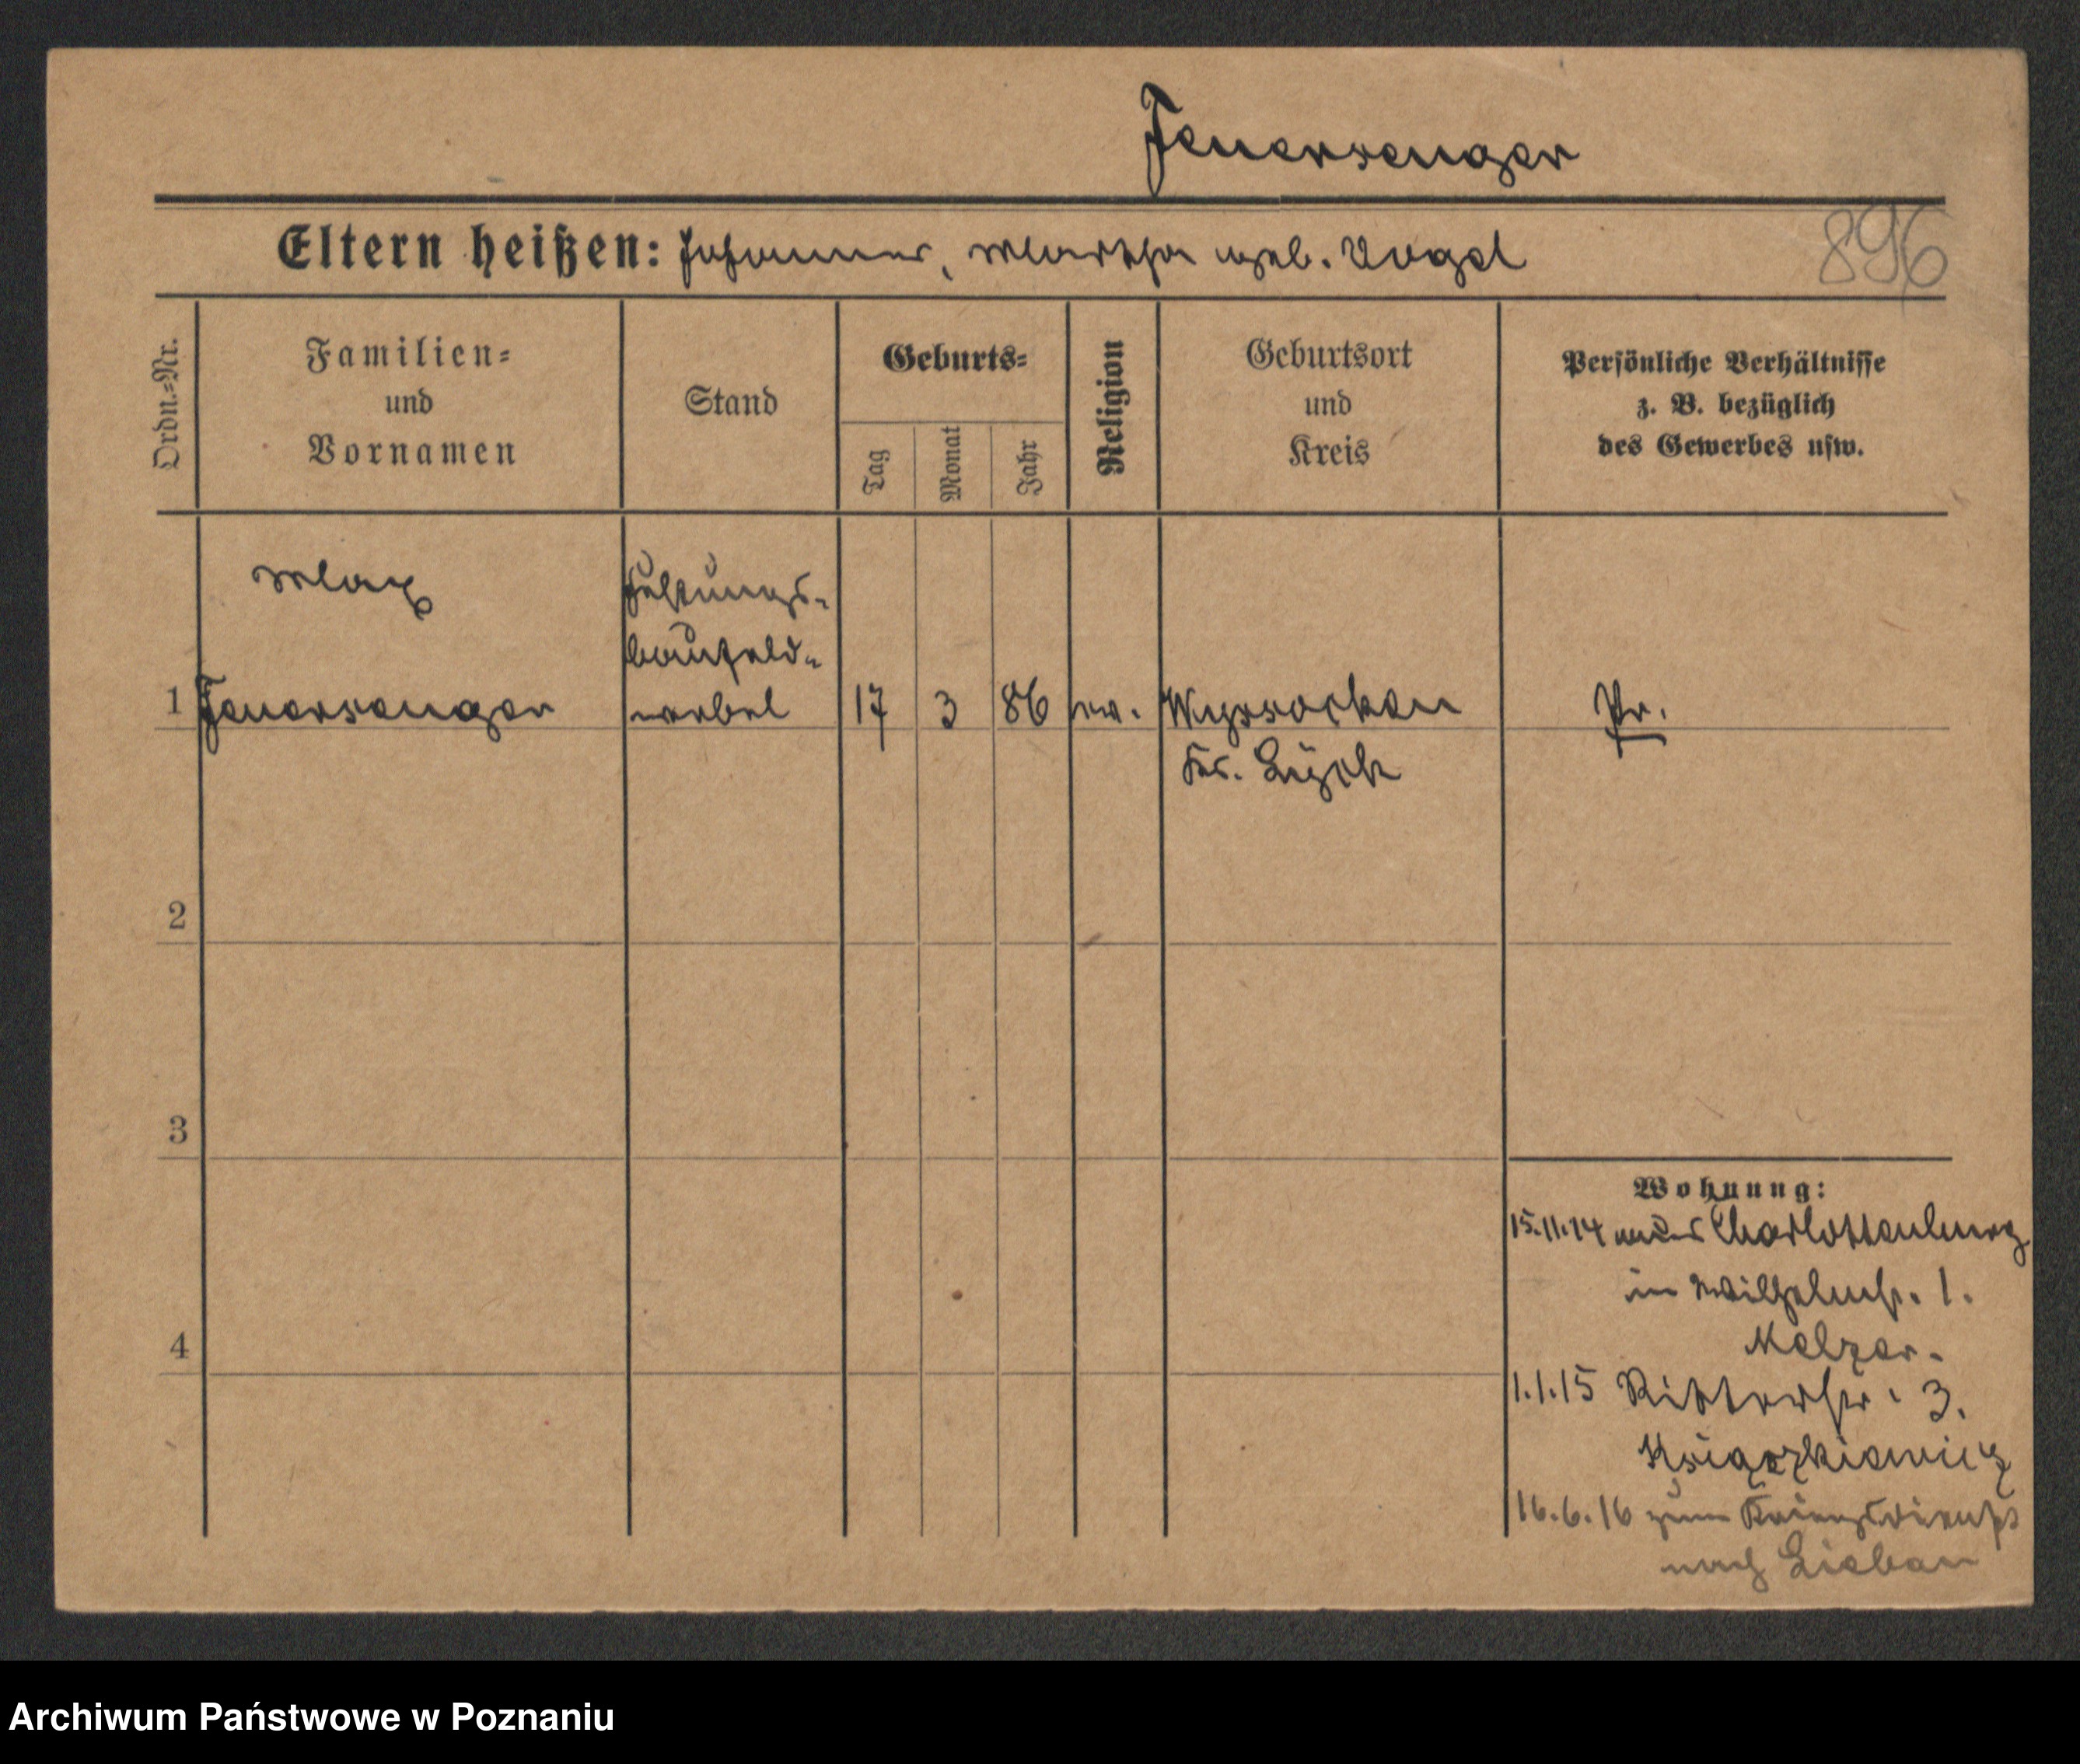 Feuersenger
Eltern heißen: Johannes, Martha geb. Vogel
896
Ordn.=Nr.
Familien=
und
Vornamen
Stand
Geburts=
Tag
Monat
Jahr
Religion
Geburtsort
und
Kreis
Persönliche Verhältnisse
z. B. bezüglich
des Gewerbes usw.
Max
Festungs-
baufeld-
1 Feuersenger webel 17 3 86 ev. Wyssocken Pr.
Krs. Lyck
2
3
4
Wohnung:
15.11.14 aus Charlottenburg
in Wilhelmstr. 1.
Melzer.
1.1.15 Ritterstr. 3.
Książkiewicz
16.6.16 zum Kriegsdienst
nach Liebau
Archiwum Państwowe w Poznaniu